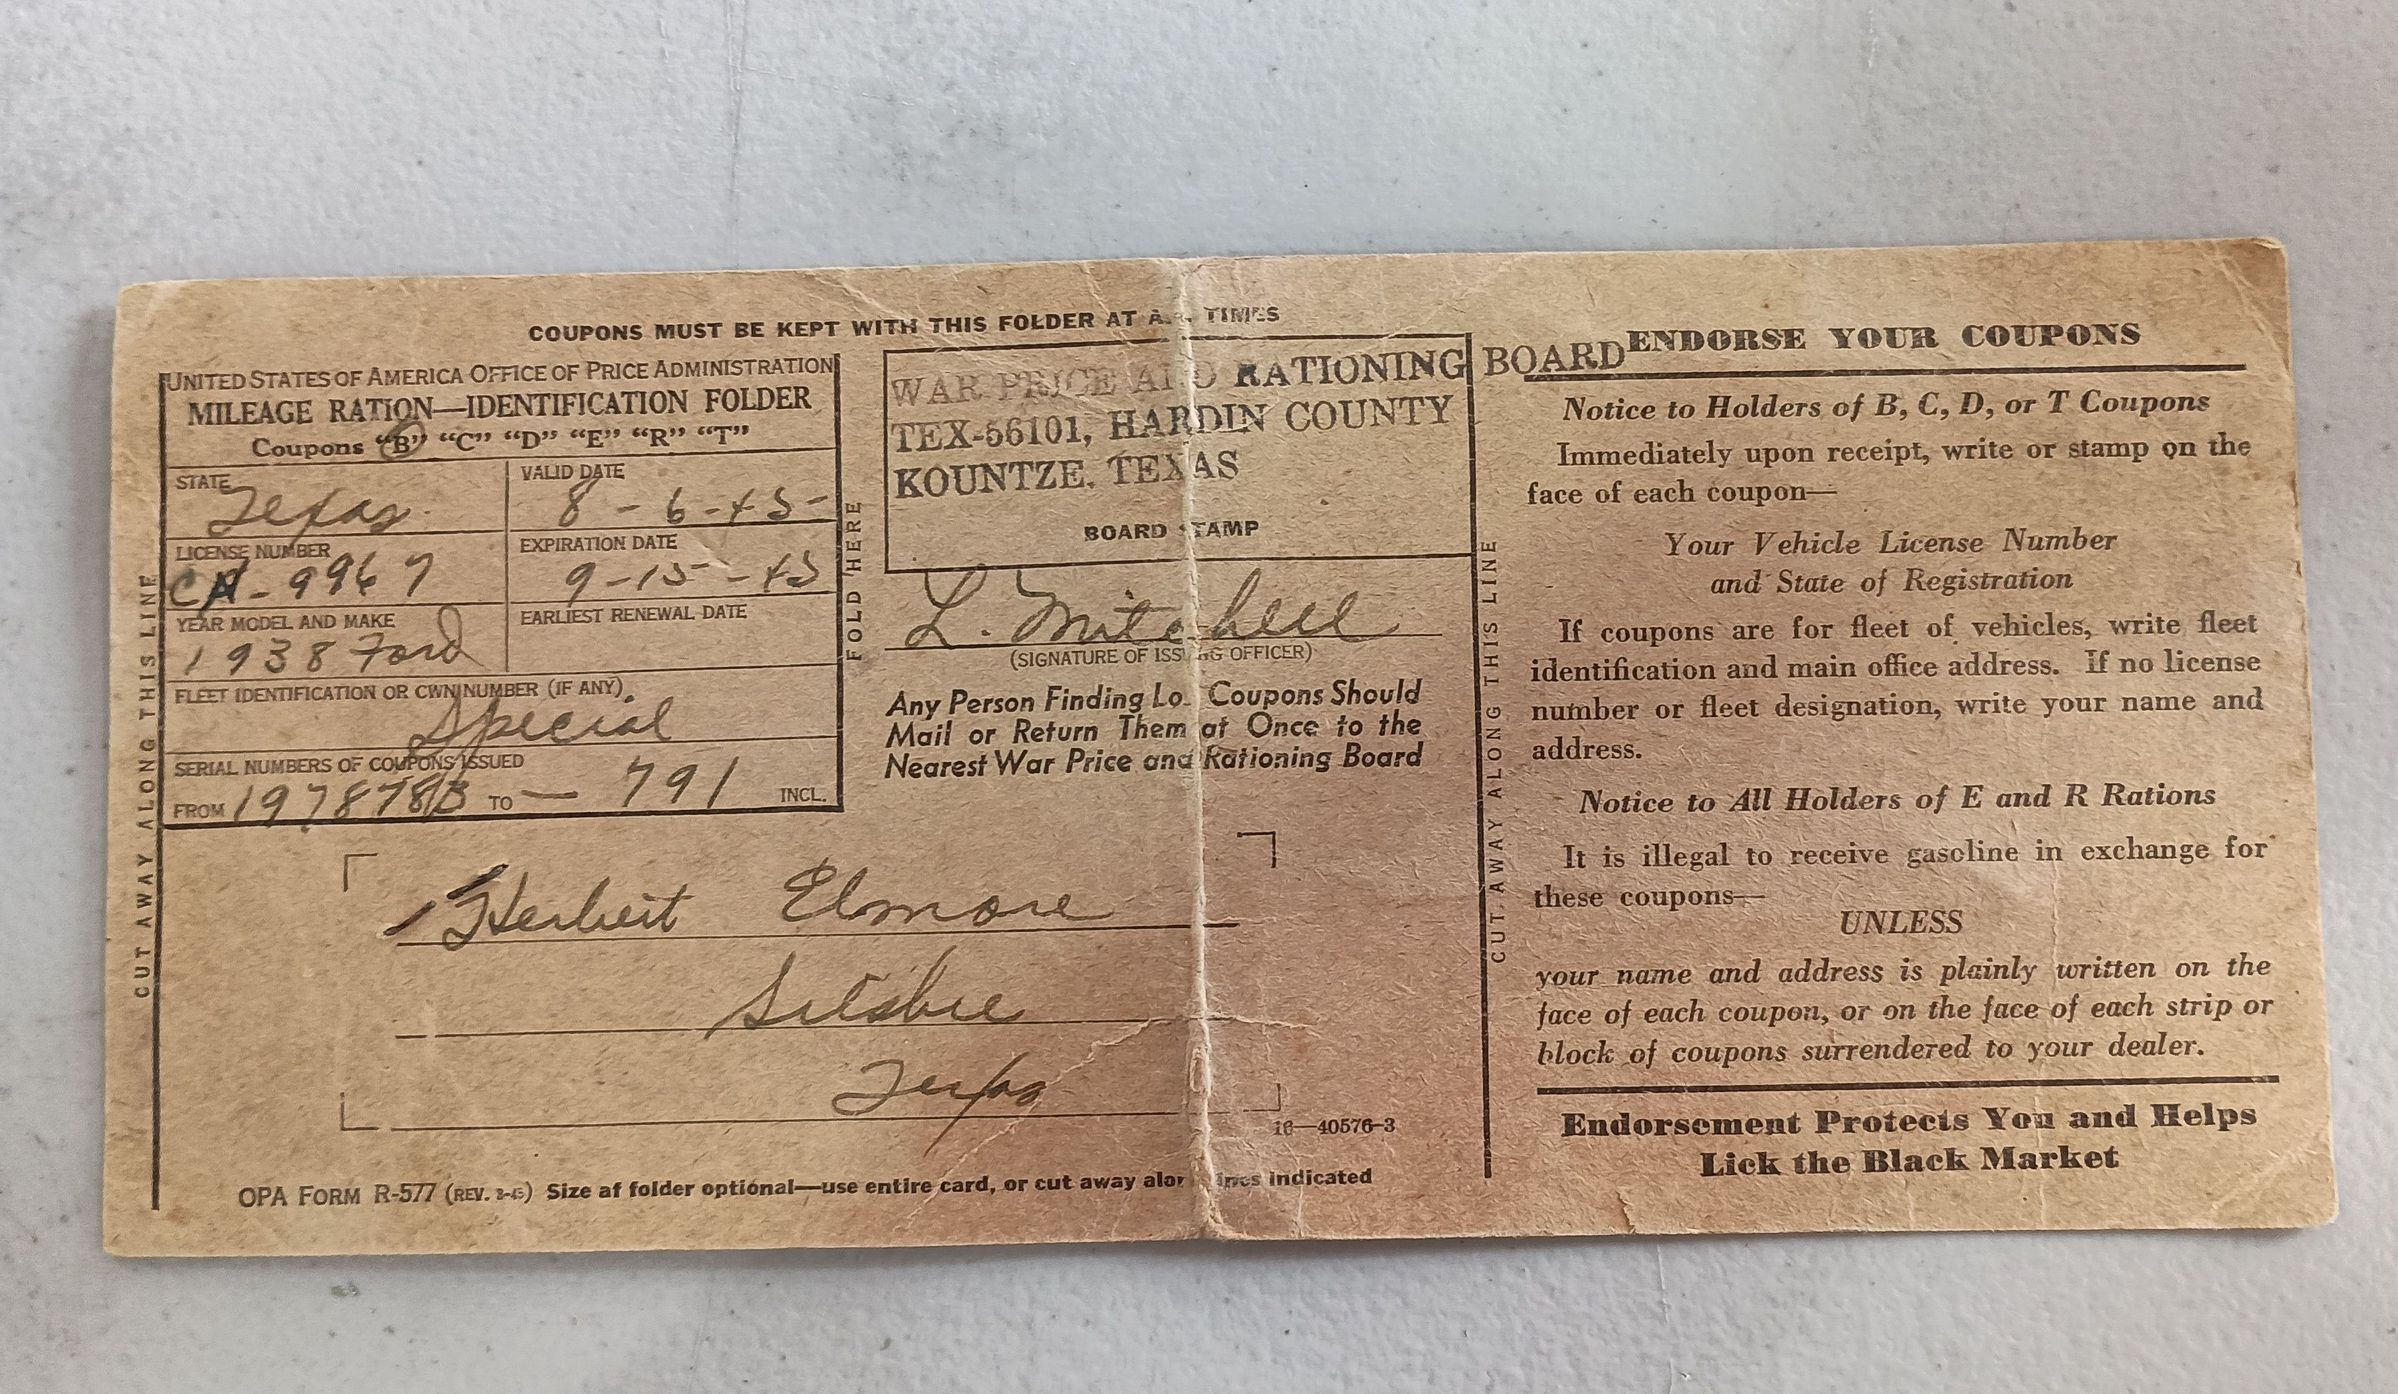 COUPONS MUST BE KEPT WITH THIS FOLDER AT TIMES
UNITED STATES OF AMERICA OFFICE OF PRICE ADMINISTRATION
MILEAGE RATION—IDENTIFICATION FOLDER
Coupons "B" "C" "D" "E" "R" "T"
STATE
Texas
VALID DATE
8-6-45-
LICENSE NUMBER
CA-9967
EXPIRATION DATE
9-15-45
YEAR MODEL AND MAKE
1938 Ford
EARLIEST RENEWAL DATE
FLEET IDENTIFICATION OR OWN NUMBER (IF ANY)
Special
SERIAL NUMBERS OF COUPONS ISSUED
FROM 197878B TO — 791 INCL.
CUT AWAY ALONG THIS LINE
FOLD HERE
WAR PRICE AND RATIONING BOARD
TEX-56101, HARDIN COUNTY
KOUNTZE, TEXAS
BOARD STAMP
L. Mitchell
(SIGNATURE OF ISSUING OFFICER)
Any Person Finding Lost Coupons Should
Mail or Return Them at Once to the
Nearest War Price and Rationing Board
Herbert Elmore
Silsbee
Texas
16—40576-3
OPA FORM R-577 (REV. ) Size of folder optional—use entire card, or cut away along lines indicated
CUT AWAY ALONG THIS LINE
ENDORSE YOUR COUPONS
Notice to Holders of B, C, D, or T Coupons
Immediately upon receipt, write or stamp on the
face of each coupon—
Your Vehicle License Number
and State of Registration
If coupons are for fleet of vehicles, write fleet
identification and main office address. If no license
number or fleet designation, write your name and
address.
Notice to All Holders of E and R Rations
It is illegal to receive gasoline in exchange for
these coupons—
UNLESS
your name and address is plainly written on the
face of each coupon, or on the face of each strip or
block of coupons surrendered to your dealer.
Endorsement Protects You and Helps
Lick the Black Market